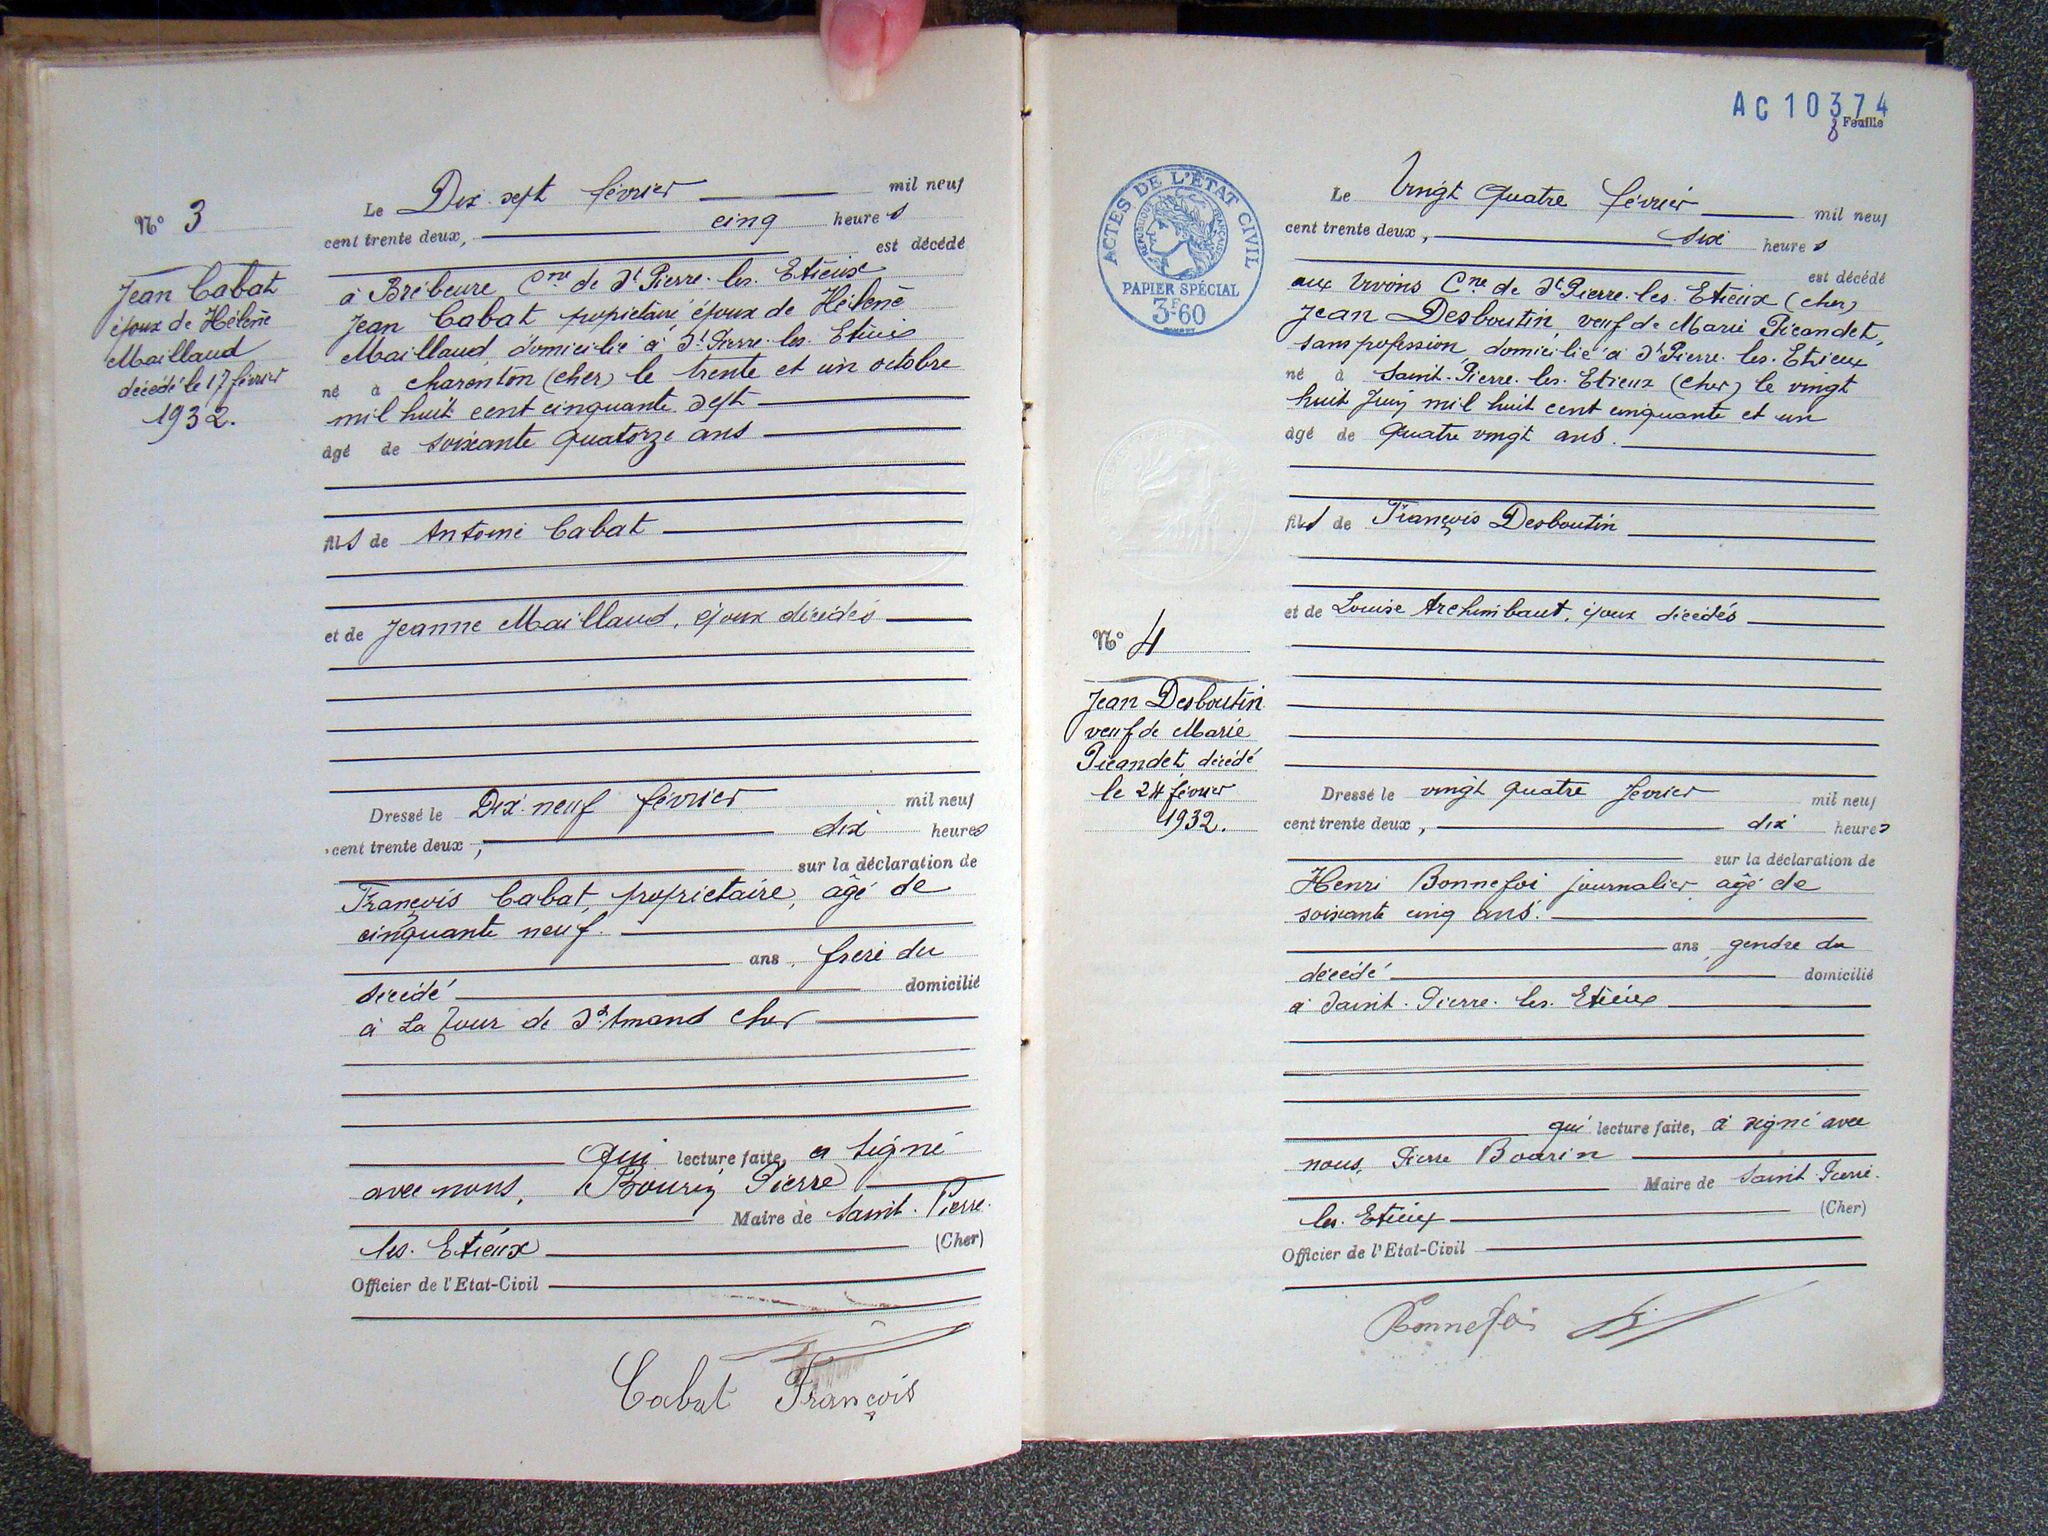 N° 3
Jean Cabat
époux de Hélène
Maillaud
décédé le 17 février
1932.
Le Dix sept février mil neuf
cent trente deux, cinq heures
est décédé
à Brébeure Cne de St Pierre. les. Etieux
Jean Cabat propriétaire époux de Hélène
Maillaud, domicilié à St Pierre. les. Etieux
né à Charenton (cher) le trente et un octobre
mil huit cent cinquante sept
âgé de soixante quatorze ans
fils de Antoine Cabat
et de Jeanne Maillaud, époux décédés
Dressé le Dix. neuf février mil neuf
cent trente deux, dix heures
sur la déclaration de
François Cabat, propriétaire, âgé de
cinquante neuf.
ans, frère du
décédé domicilié
à La Tour de St Amand Cher
qui lecture faite, a signé
avec nous, Bourin Pierre
Maire de Saint. Pierre.
les. Etieux (Cher)
Officier de l'Etat-Civil
Cabat François
AC 10374
8 Feuille
ACTES DE L'ÉTAT CIVIL
RÉPUBLIQUE FRANÇAISE
PAPIER SPÉCIAL
3F60
N° 4
Jean Desboutin
veuf de Marie
Picandet décédé
le 24 février
1932.
Le Vingt quatre février mil neuf
cent trente deux, six heures
est décédé
aux Vivons Cne de St Pierre. les. Etieux (cher)
Jean Desboutin, veuf de Marie Picandet,
sans profession, domicilié à St Pierre. les. Etieux
né à Saint. Pierre. les. Etieux (cher) le vingt
huit Juin mil huit cent cinquante et un
âgé de quatre vingt ans.
fils de François Desboutin
et de Louise Archimbaut, époux décédés
Dressé le vingt quatre février mil neuf
cent trente deux, dix heures
sur la déclaration de
Henri Bonnefoi journalier, âgé de
soixante cinq ans.
ans, gendre du
décédé domicilié
à Saint. Pierre. les. Etieux
qui lecture faite, a signé avec
nous, Pierre Bourin
Maire de Saint Pierre.
les. Etieux (Cher)
Officier de l'Etat-Civil
Bonnefoi